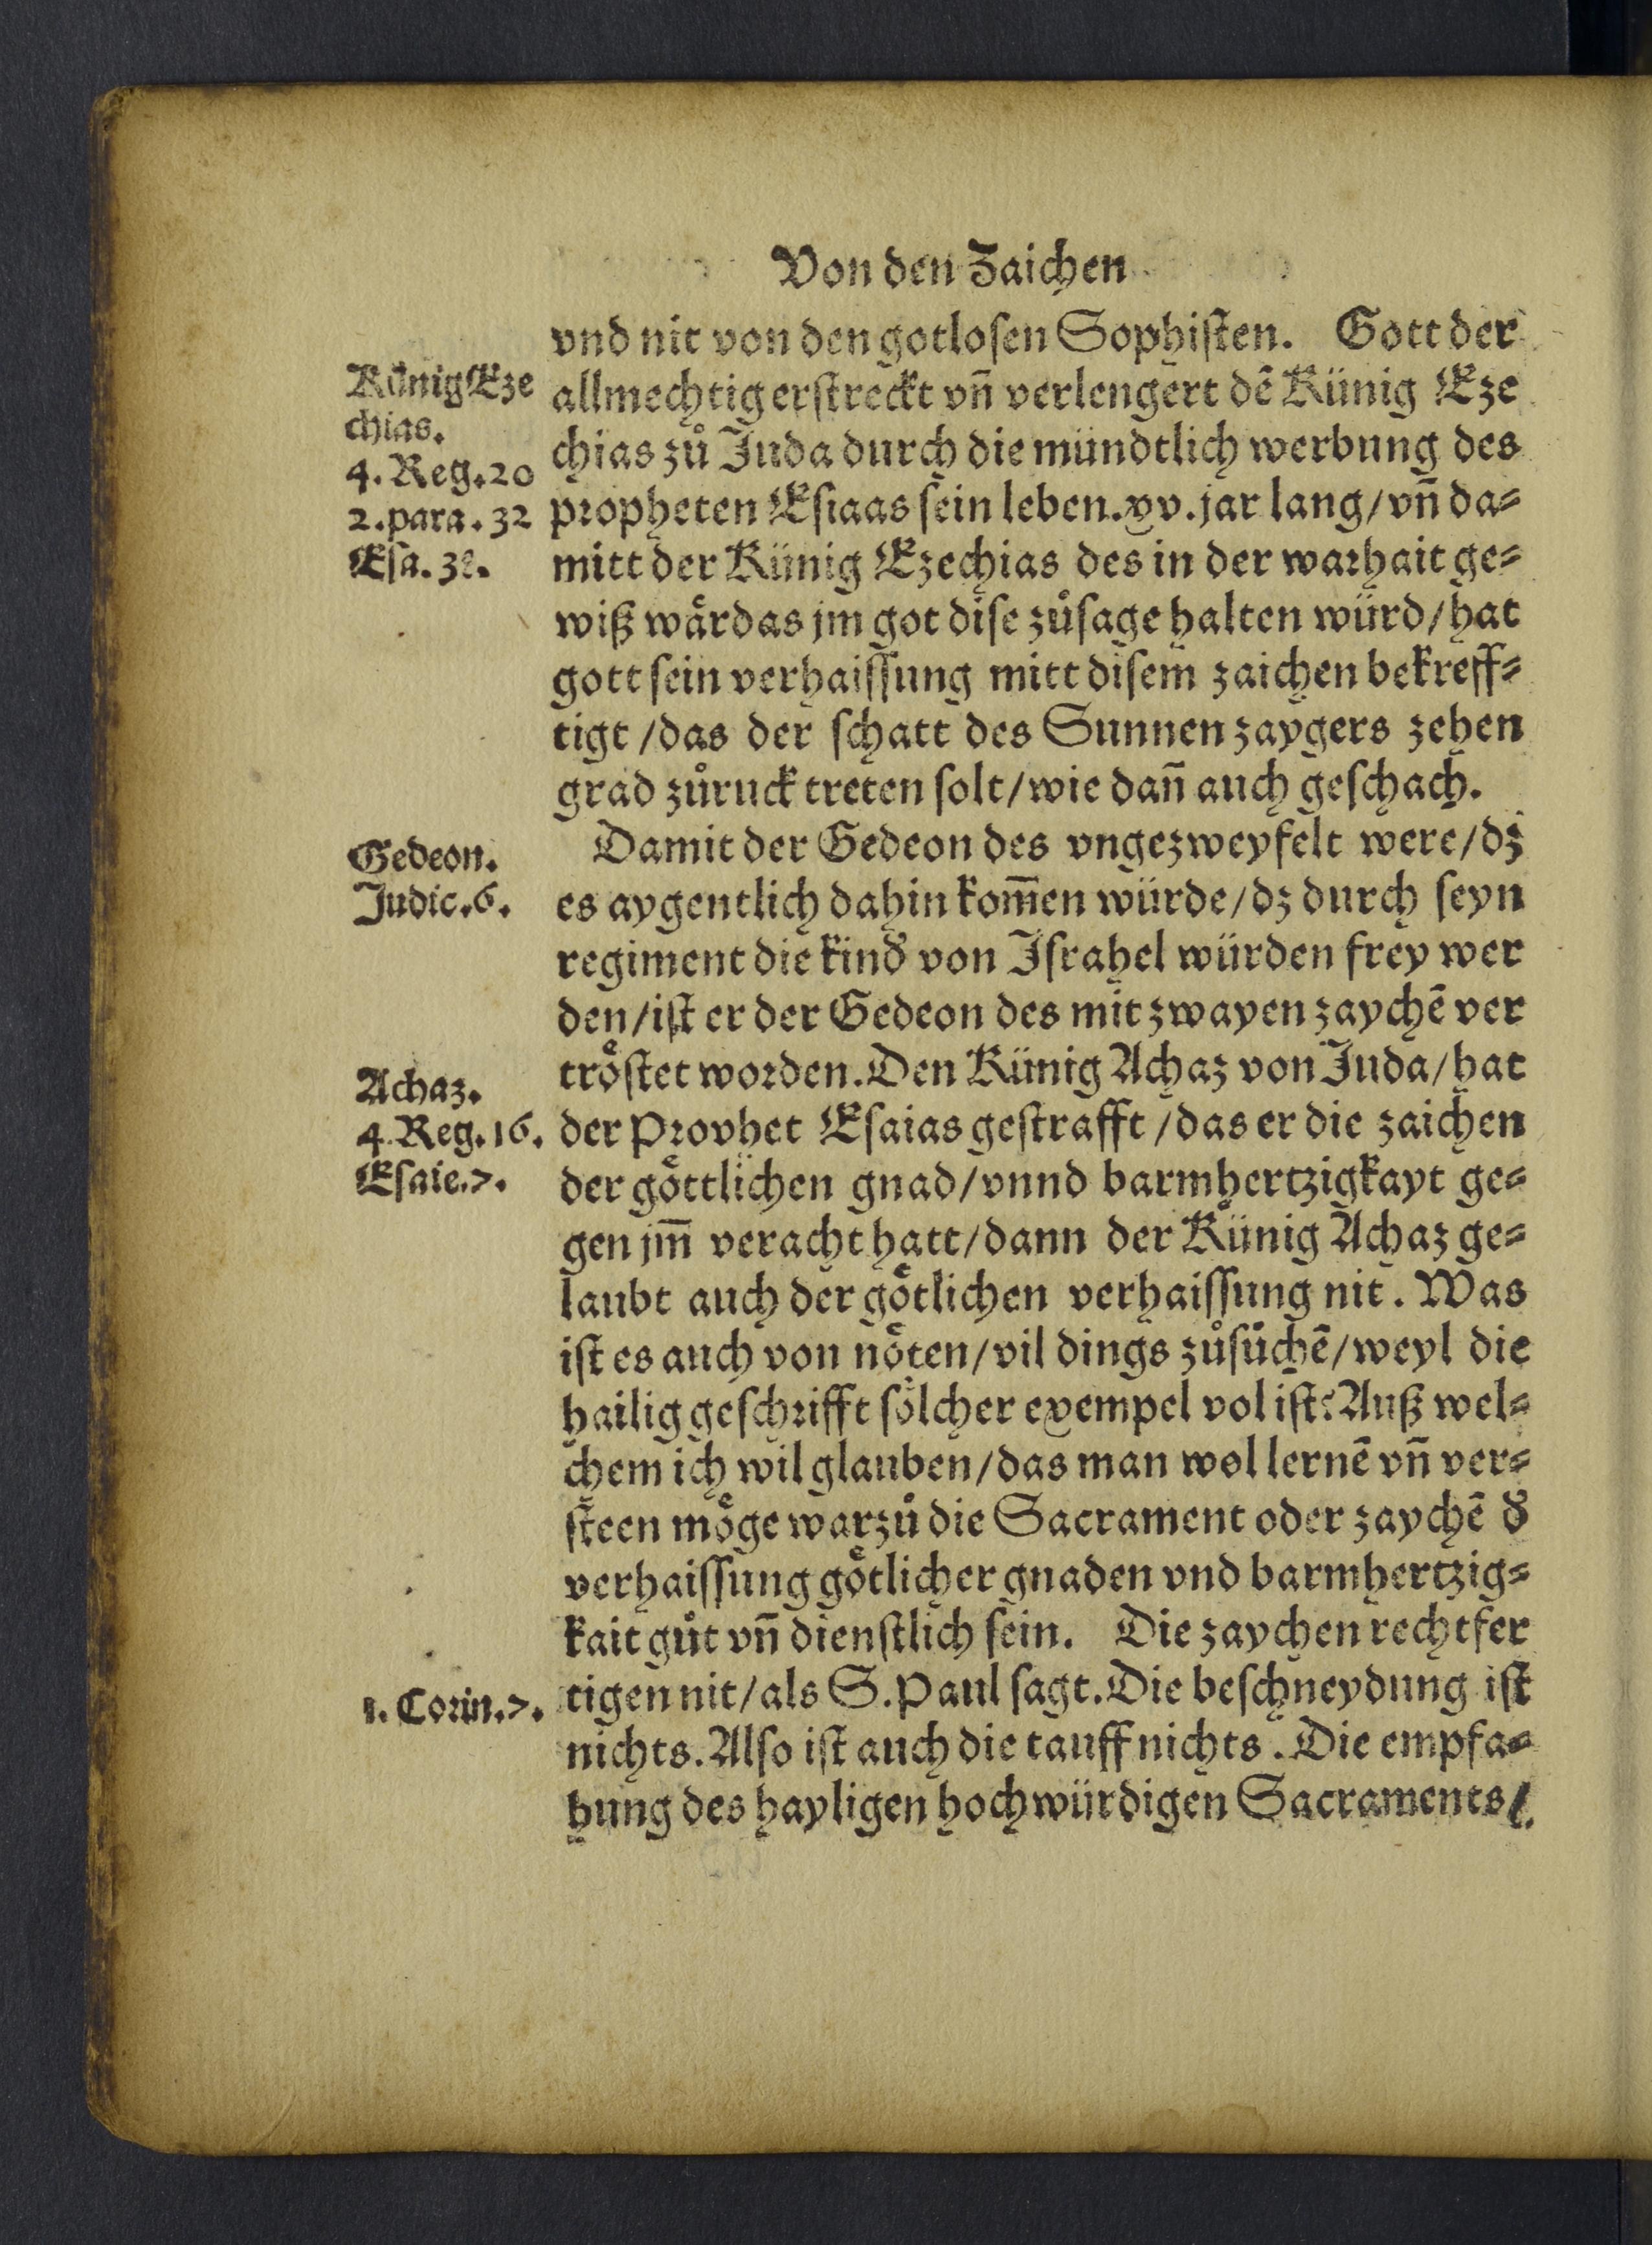 Von den Zaichen
vnd nit von den gotloſen Sophiſten. Gott der
allmechtig erſtreckt vn̄ verlengert dē Künig Eze
chias zů Juda durch die mündtlich werbung des
propheten Eſiaas ſein leben.xv.jar lang/vn̄ da⸗
mitt der Künig Ezechias des in der warhait ge⸗
wiß waͤr das jm got diſe zůſage halten würd/hat
gott ſein verhaiſſung mitt diſem zaichen bekreff⸗
tigt/das der ſchatt des Sunnen zaygers zehen
grad zůruck treten ſolt/wie dan̄ auch geſchach.
Damit der Gedeon des vngezweyfelt were/dz
es aygentlich dahin kom̄en würde/dz durch ſeyn
regiment die kind̕ von Iſrahel würden frey wer
den/iſt er der Gedeon des mit zwayen zaychē ver
troͤſtet worden. Den Künig Achaz von Juda/hat
der Prophet Eſaias geſtrafft/das er die zaichen
der goͤttlichen gnad/vnnd barmhertzigkayt ge⸗
gen jm̄ veracht hatt/dann der Künig Achaz ge⸗
laubt auch der goͤtlichen verhaiſſung nit. Was
iſt es auch von noͤten/vil dings zůſůchē/weyl die
hailig geſchrifft ſoͤlcher exempel vol iſt? Auß wel⸗
chem ich wil glauben/das man wol lernē vn̄ ver⸗
ſteen moͤge warzů die Sacrament oder zaychē d̕
verhaiſſung goͤtlicher gnaden vnd barmhertzig⸗
kait gůt vn̄ dienſtlich ſein. Die zaychen rechtfer
tigen nit/als S. Paul ſagt. Die beſchneydung iſt
nichts. Alſo iſt auch die tauff nichts. Die empfa⸗
hung des hayligen hochwürdigen Sacraments/
Künig Eze
chias.
4. Reg. 20
2. para. 32
Eſa. 38.
Gedeon.
Judic. 6.
Achaz.
4. Reg. 16.
Eſaie. 7.
1. Corin. 7.